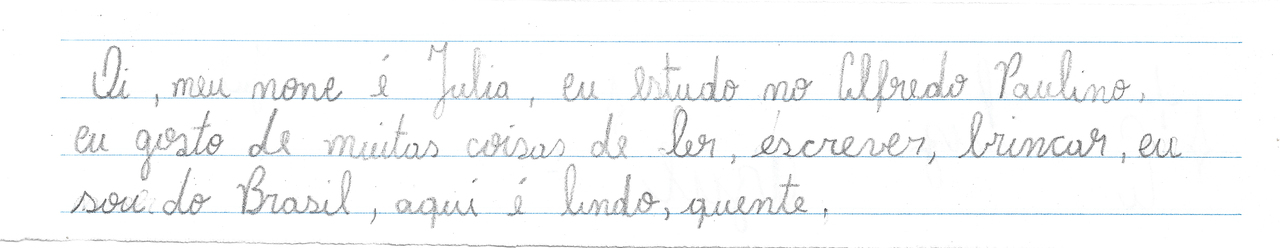 Oi, meu none é Julia, eu estudo no Alfredo Paulino,
eu gosto de muitas coisas de ler, escrever, brincar, eu
sou do Brasil, aqui é lindo, quente.